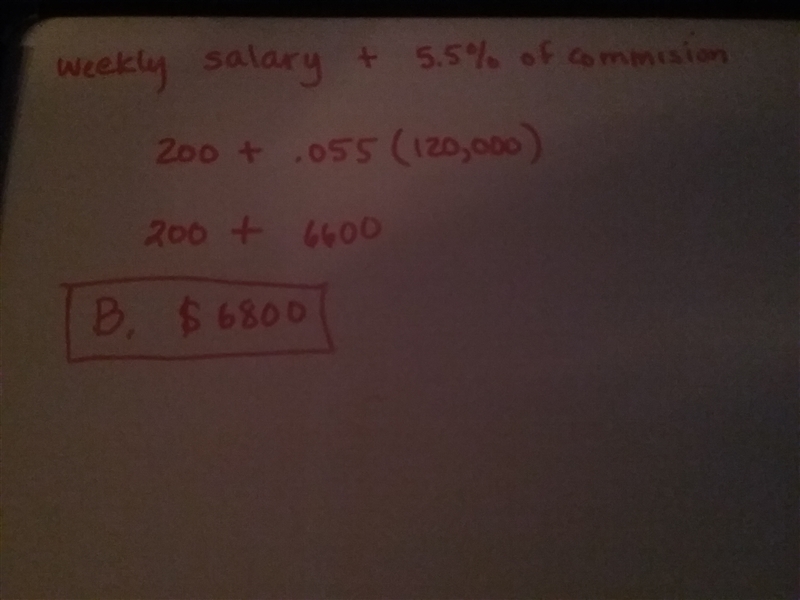 weekly salary + 5.5% of commision
200 + .055 (120,000)
200 + 6600
B. $6800